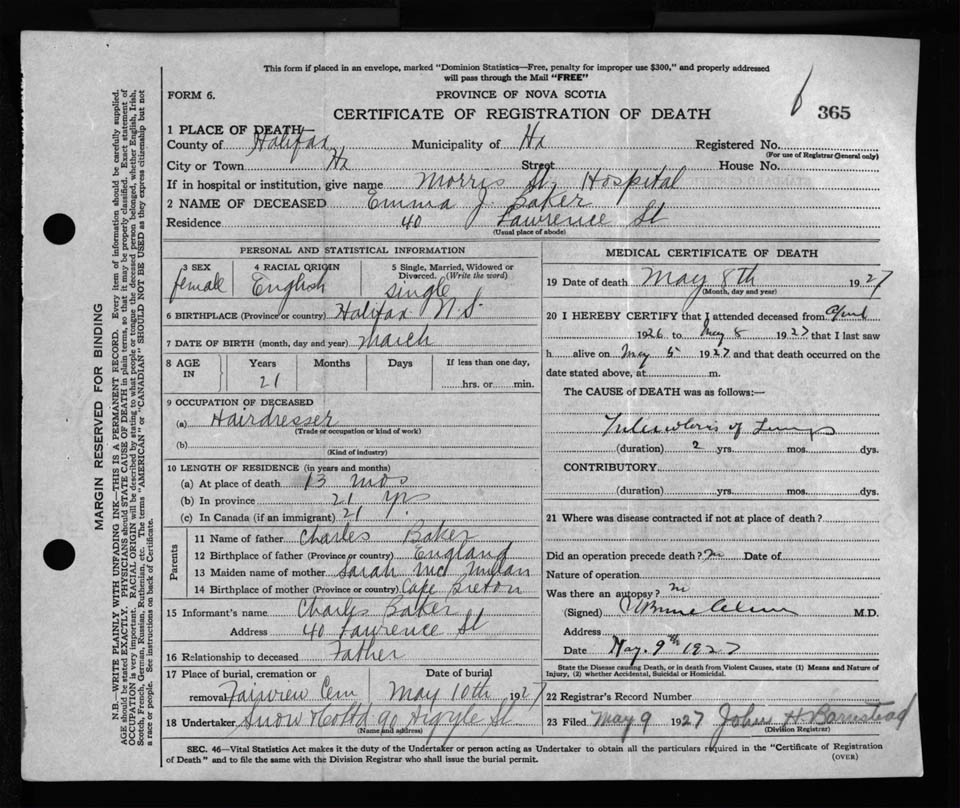 This form if placed in an envelope, marked "Dominion Statistics—Free, penalty for improper use $300," and properly addressed
will pass through the Mail "FREE"
FORM 6.
PROVINCE OF NOVA SCOTIA
CERTIFICATE OF REGISTRATION OF DEATH
6 365
1 PLACE OF DEATH
County of Halifax Municipality of Hx Registered No.
(For use of Registrar General only)
City or Town Hx Street House No.
If in hospital or institution, give name Morris St, Hospital
2 NAME OF DECEASED Emma J. Baker
Residence 40 Lawrence St
(Usual place of abode)
PERSONAL AND STATISTICAL INFORMATION
3 SEX 4 RACIAL ORIGIN 5 Single, Married, Widowed or Divorced. (Write the word)
female English single
6 BIRTHPLACE (Province or country) Halifax N.S.
7 DATE OF BIRTH (month, day and year) March
8 AGE IN Years Months Days If less than one day,
21 hrs. or min.
9 OCCUPATION OF DECEASED
(a) Hairdresser
(Trade or occupation or kind of work)
(b)
(Kind of industry)
10 LENGTH OF RESIDENCE (in years and months)
(a) At place of death 13 mos
(b) In province 21 yrs
(c) In Canada (if an immigrant) 21
Parents
11 Name of father Charles Baker
12 Birthplace of father (Province or country) England
13 Maiden name of mother Sarah McMillan
14 Birthplace of mother (Province or country) Cape Breton
15 Informant's name Charles Baker
Address 40 Lawrence St
16 Relationship to deceased Father
17 Place of burial, cremation or Date of burial
removal Fairview Cem May 10th 1927
18 Undertaker Snow & Co Ltd 90 Argyle St
(Name and address)
MEDICAL CERTIFICATE OF DEATH
19 Date of death May 8th 1927
(Month, day and year)
20 I HEREBY CERTIFY that I attended deceased from April
1926 to May 8 1927 that I last saw
h alive on May 5 1927 and that death occurred on the
date stated above, at m.
The CAUSE of DEATH was as follows:
Tuberculosis of Lungs
(duration) 2 yrs. mos. dys.
CONTRIBUTORY
(duration) yrs. mos. dys.
21 Where was disease contracted if not at place of death?
Did an operation precede death? no Date of
Nature of operation
Was there an autopsy? no
(Signed) M.D.
Address
Date May. 9th 1927
State the Disease causing Death, or in death from Violent Causes, state (1) Means and Nature of
Injury, (2) whether Accidental, Suicidal or Homicidal.
22 Registrar's Record Number
23 Filed May 9 1927 John H Barnstead
(Division Registrar)
SEC. 46—Vital Statistics Act makes it the duty of the Undertaker or person acting as Undertaker to obtain all the particulars required in the "Certificate of Registration
of Death" and to file the same with the Division Registrar who shall issue the burial permit.
(OVER)
MARGIN RESERVED FOR BINDING
N.B.—WRITE PLAINLY WITH UNFADING INK—THIS IS A PERMANENT RECORD. Every item of information should be carefully supplied.
AGE should be stated EXACTLY. PHYSICIANS should STATE CAUSE OF DEATH in plain terms, so that it may be properly classified. Exact statement of
OCCUPATION is very important. RACIAL ORIGIN will be described by stating to what people or tongue the deceased person belonged, whether English, Irish,
Scotch, French, German, Russian, Ruthenian, etc. The terms "AMERICAN" or "CANADIAN" SHOULD NOT BE USED as they express citizenship but not
a race or people. See instructions on back of Certificate.